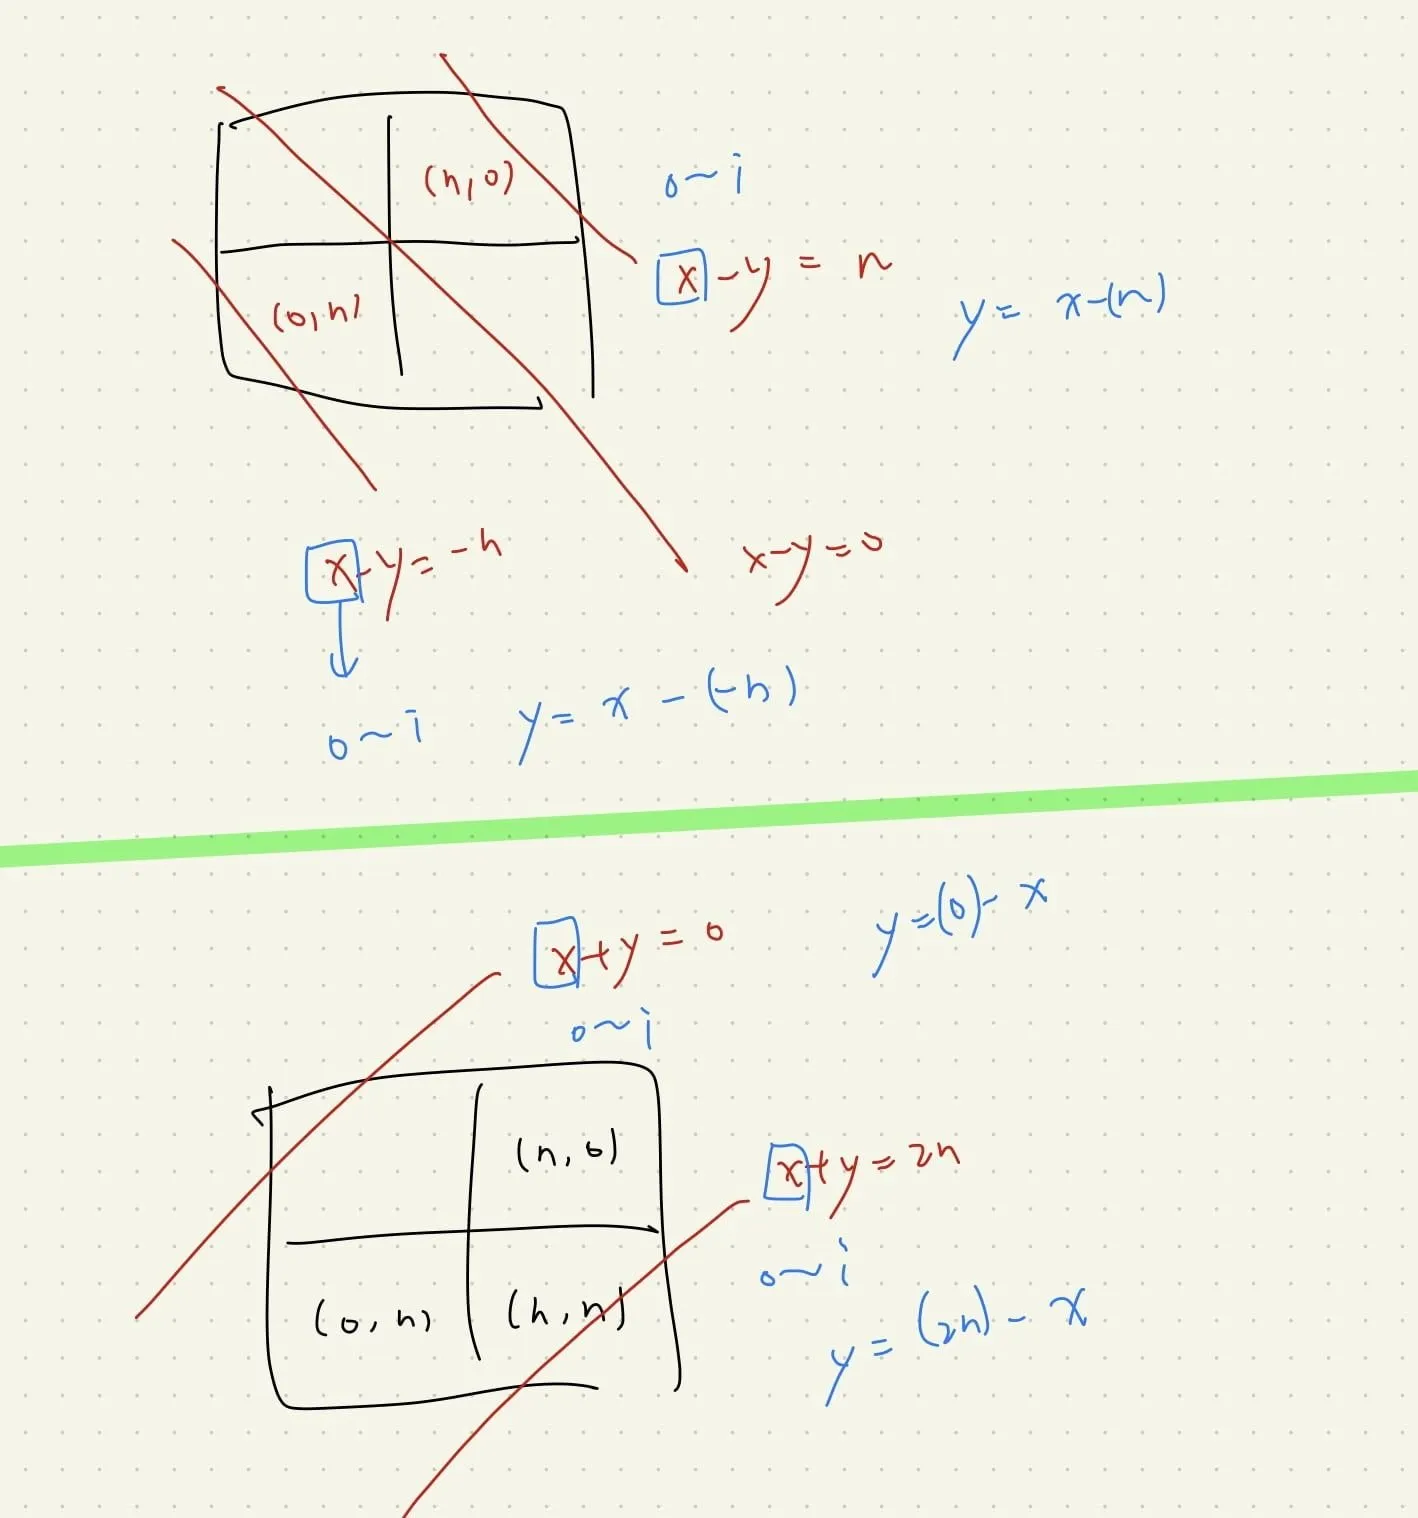 (n,0)
0~i
x-y=n
y=x-(n)
(0,n)
x-y=-n
x-y=0
0~i
y=x-(-n)
x+y=0
y=(0)-x
0~i
(n,0)
x+y=2n
0~i
(0,n)
(n,n)
y=(2n)-x